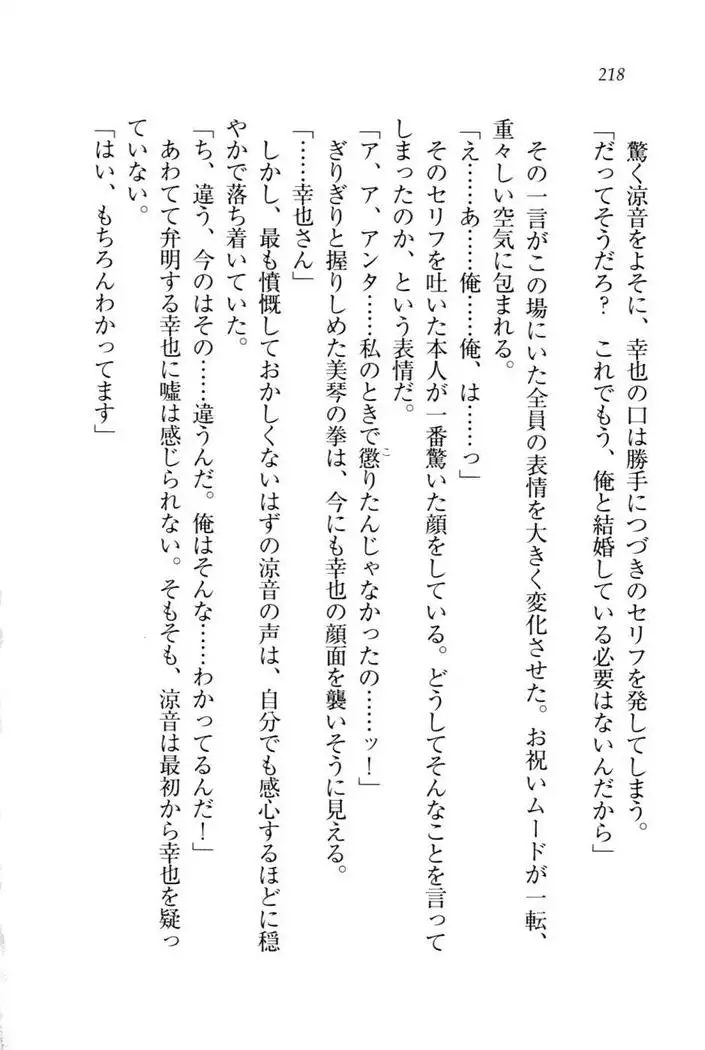 218
驚く涼音をよそに、幸也の口は勝手につづきのセリフを発してしまう。
「だってそうだろ？　これでもう、俺と結婚している必要はないんだから」
その一言がこの場にいた全員の表情を大きく変化させた。お祝いムードが一転、
重々しい空気に包まれる。
「え……あ……俺……俺、は……っ」
そのセリフを吐いた本人が一番驚いた顔をしている。どうしてそんなことを言って
しまったのか、という表情だ。
「ア、ア、アンタ……私のときで懲りたんじゃなかったの……ッ！」
こ
ぎりぎりと握りしめた美琴の拳は、今にも幸也の顔面を襲いそうに見える。
「……幸也さん」
しかし、最も憤慨しておかしくないはずの涼音の声は、自分でも感心するほどに穏
やかで落ち着いていた。
「ち、違う、今のはその……違うんだ。俺はそんな……わかってるんだ！」
あわてて弁明する幸也に嘘は感じられない。そもそも、涼音は最初から幸也を疑っ
ていない。
「はい、もちろんわかってます」